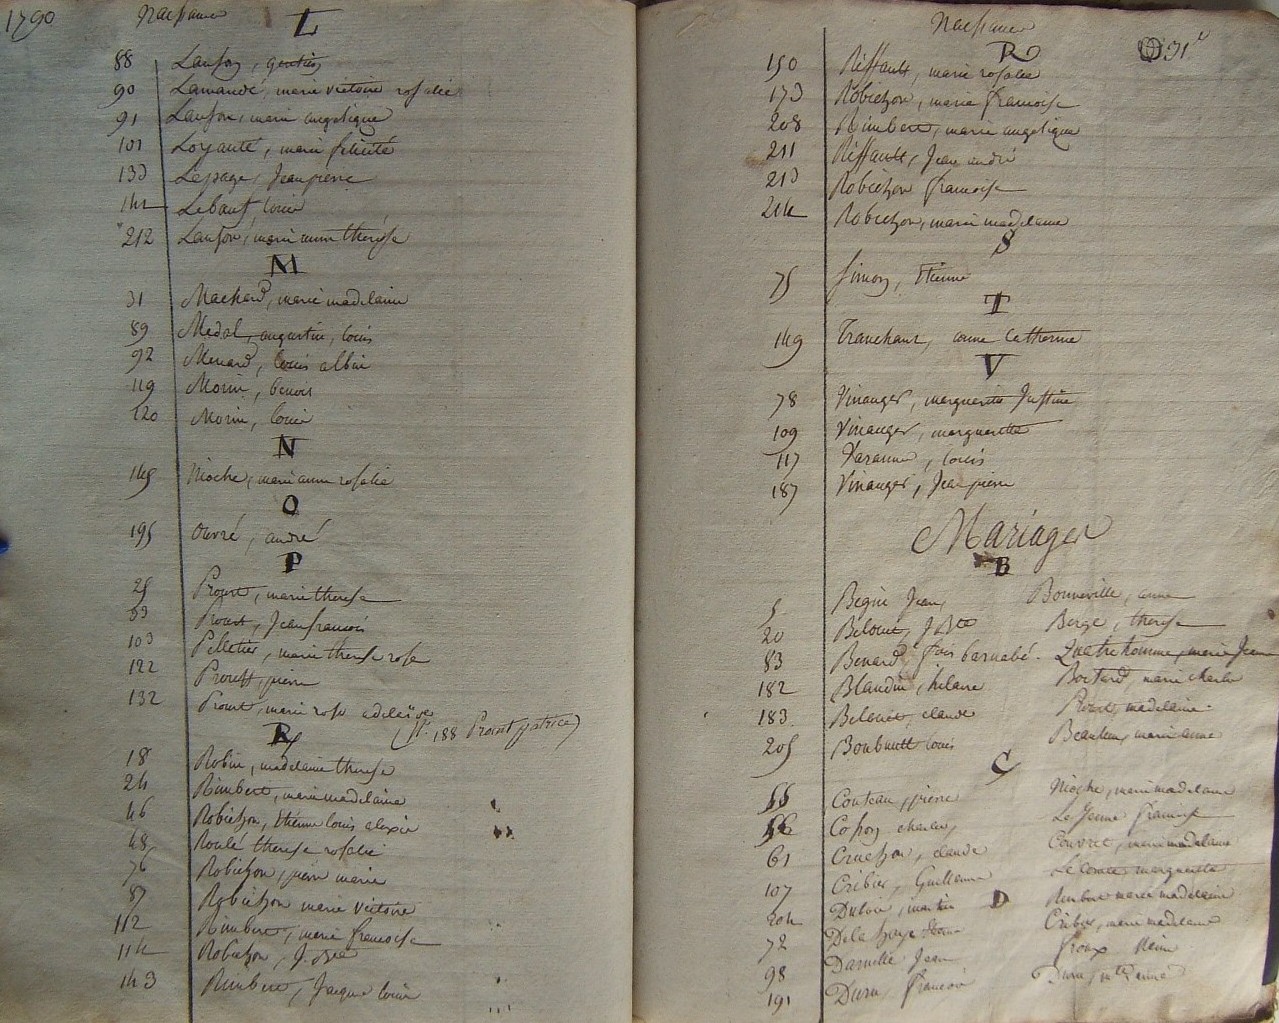 1790 Naissance
L
88 Lanson, gentien
90 Lamandé, marie victoire rosalie
91 Lanson, marie angelique
101 Loyauté, marie felicité
133 Lepage, Jean pierre
142 Lebauf, louis
212 Lanson, marie anne therese
M
31 Machard, marie madelaine
89 Medal, augustin, louis
92 Menard, louis albin
119 Morin, benois
120 Morin, louis
N
145 Nioche, marie anne rosalie
O
195 Ouvré, andré
P
25 Proust, marie therese
53 Proust, Jean francois
103 Pelletier, marie therese rose
122 Proust, pierre
132 Proust, marie rose adelaïde
188 Proust patrice
R
18 Robin, madelaine therese
24 Rimbert, marie madelaine
46 Robichon, Etienne louis alexis
48 Roulé therese rosalie
76 Robichon, pierre marie
87 Robichon marie victoire
112 Rimbert, marie francoise
114 Robichon,
143 Rimbert, Jacque louis
Naissance
R 31
150 Riffault, marie rosalie
173 Robichon, marie francoise
208 Rimbert, marie angelique
211 Riffault, Jean andré
213 Robichon francoise
214 Robichon, marie madelaine
S
75 Simon, Etienne
T
149 Tranchant, anne Catherine
V
78 Vinauger, marguerite Justine
109 Vinauger, marguerite
117 Varanne, louis
187 Vinauger, Jean pierre
Mariages
B
5 Begue Jean, Bonneville, anne
20 Belouet, J. Bte Berge, therese
83 Benard, fois barnabé. Quatrehomme, marie Jeanne
182 Blandin, hilaire Boitard, marie charlo
183 Belouet, claude Proust, madelaine.
205 louis marie anne
C
55 Couteau, pierre Nioche, marie madelaine
56 Cosson charles, Le Jeune francoise
61 Cruchon, claude Couvret, marie madelaine
107 Cribier, Guillaume Le Comte marguerite
D
204 Dutoir, martin Rimbert marie madelaine
72 Delahaye Cribier, marie madelaine
98 Darnille Jean Proux Reine
191 Duru, francois Duru,